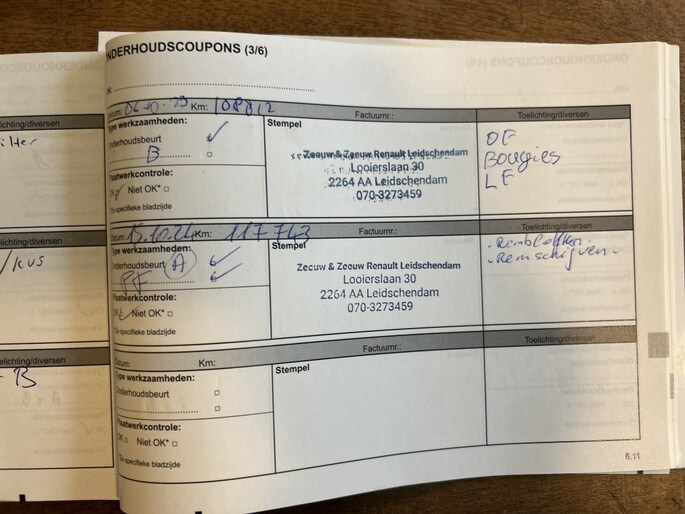 NDERHOUDSCOUPONS (3/6)
Datum: 06-10-23 Km: 108812 Factuurnr.: Toelichting/diversen
Type werkzaamheden:
Onderhoudsbeurt ✓
B
Plaatwerkcontrole:
OK Niet OK*
*Zie specifieke bladzijde
Stempel
Zeeuw & Zeeuw Renault Leidschendam
Looierslaan 30
2264 AA Leidschendam
070-3273459
OF
Bougies
LF
Datum: 15.10.24 Km: 117743 Factuurnr.: Toelichting/diversen
Type werkzaamheden:
Onderhoudsbeurt A ✓
PF ✓
Plaatwerkcontrole:
OK Niet OK*
*Zie specifieke bladzijde
Stempel
Zeeuw & Zeeuw Renault Leidschendam
Looierslaan 30
2264 AA Leidschendam
070-3273459
- Remblokken.
- Remschijven -
Datum: Km: Factuurnr.: Toelichting/diversen
Type werkzaamheden:
Onderhoudsbeurt
Plaatwerkcontrole:
OK Niet OK*
*Zie specifieke bladzijde
Stempel
6.11
elichting/diversen
elichting/diversen
elichting/diversen
B